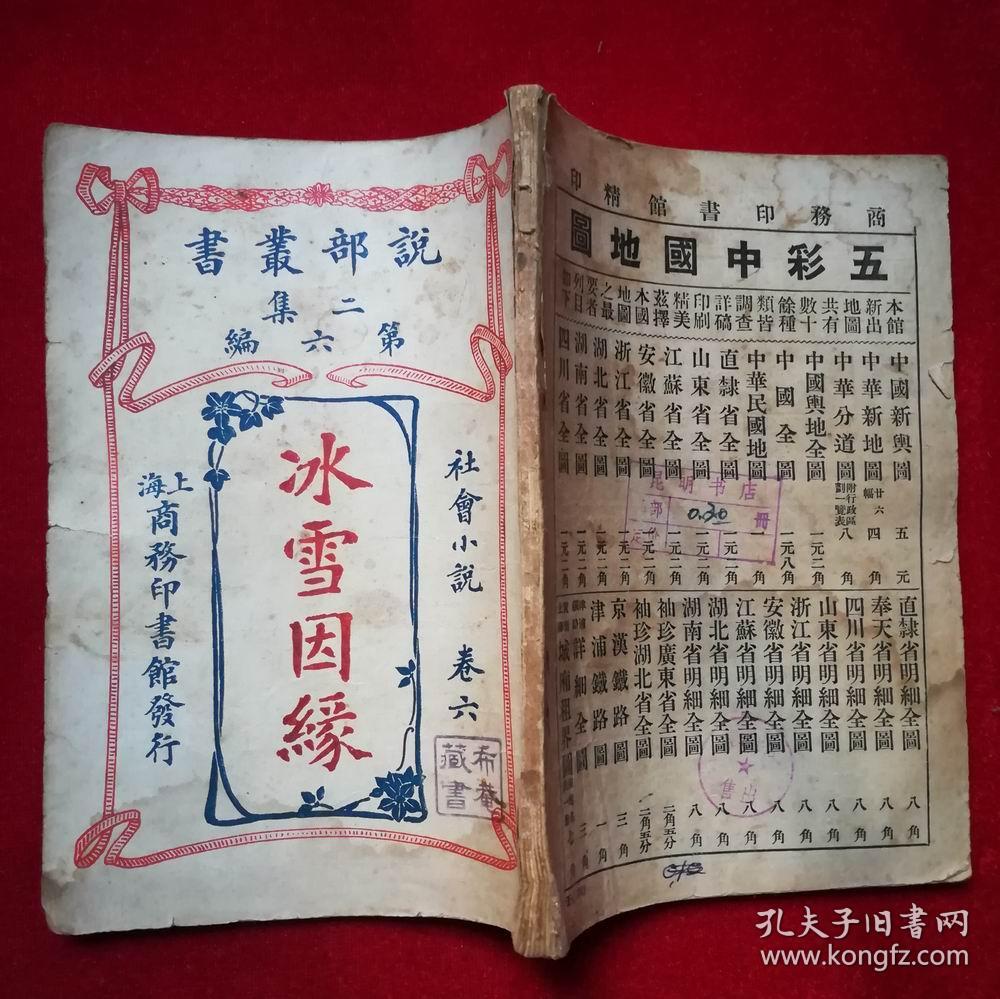 說部叢書
二集
第六編
社會小說 卷六
冰雪因緣
上海商務印書館發行
希菴藏書
商務印書館精印
五彩中國地圖
本館新出地圖共有數十餘種類皆調查詳確印刷精美茲擇本國地圖之最要者列目如下
中國新輿圖 五元
中華新地圖 廿六幅 四角
中華分道圖 附行政區劃一覽表 八角
中國輿地全圖 一元二角
中國全圖 一元八角
中華民國地圖
直隸省全圖 一元二角
山東省全圖 一元二角
江蘇省全圖 一元二角
安徽省全圖 一元二角
浙江省全圖 一元二角
湖北省全圖 一元二角
湖南省全圖 一元二角
四川省全圖 一元二角
直隸省明細全圖 八角
奉天省明細全圖 八角
四川省明細全圖 八角
山東省明細全圖 八角
浙江省明細全圖 八角
安徽省明細全圖 八角
江蘇省明細全圖 八角
湖北省明細全圖 八角
湖南省明細全圖 八角
袖珍廣東省全圖 二角五分
袖珍湖北省全圖 二角五分
京漢鐵路圖 三角
津浦鐵路圖 一角
詳細全圖 三角
城廂租界圖
昆明书店
部 0.30 冊
定价
售出
孔夫子旧书网
www.kongfz.com